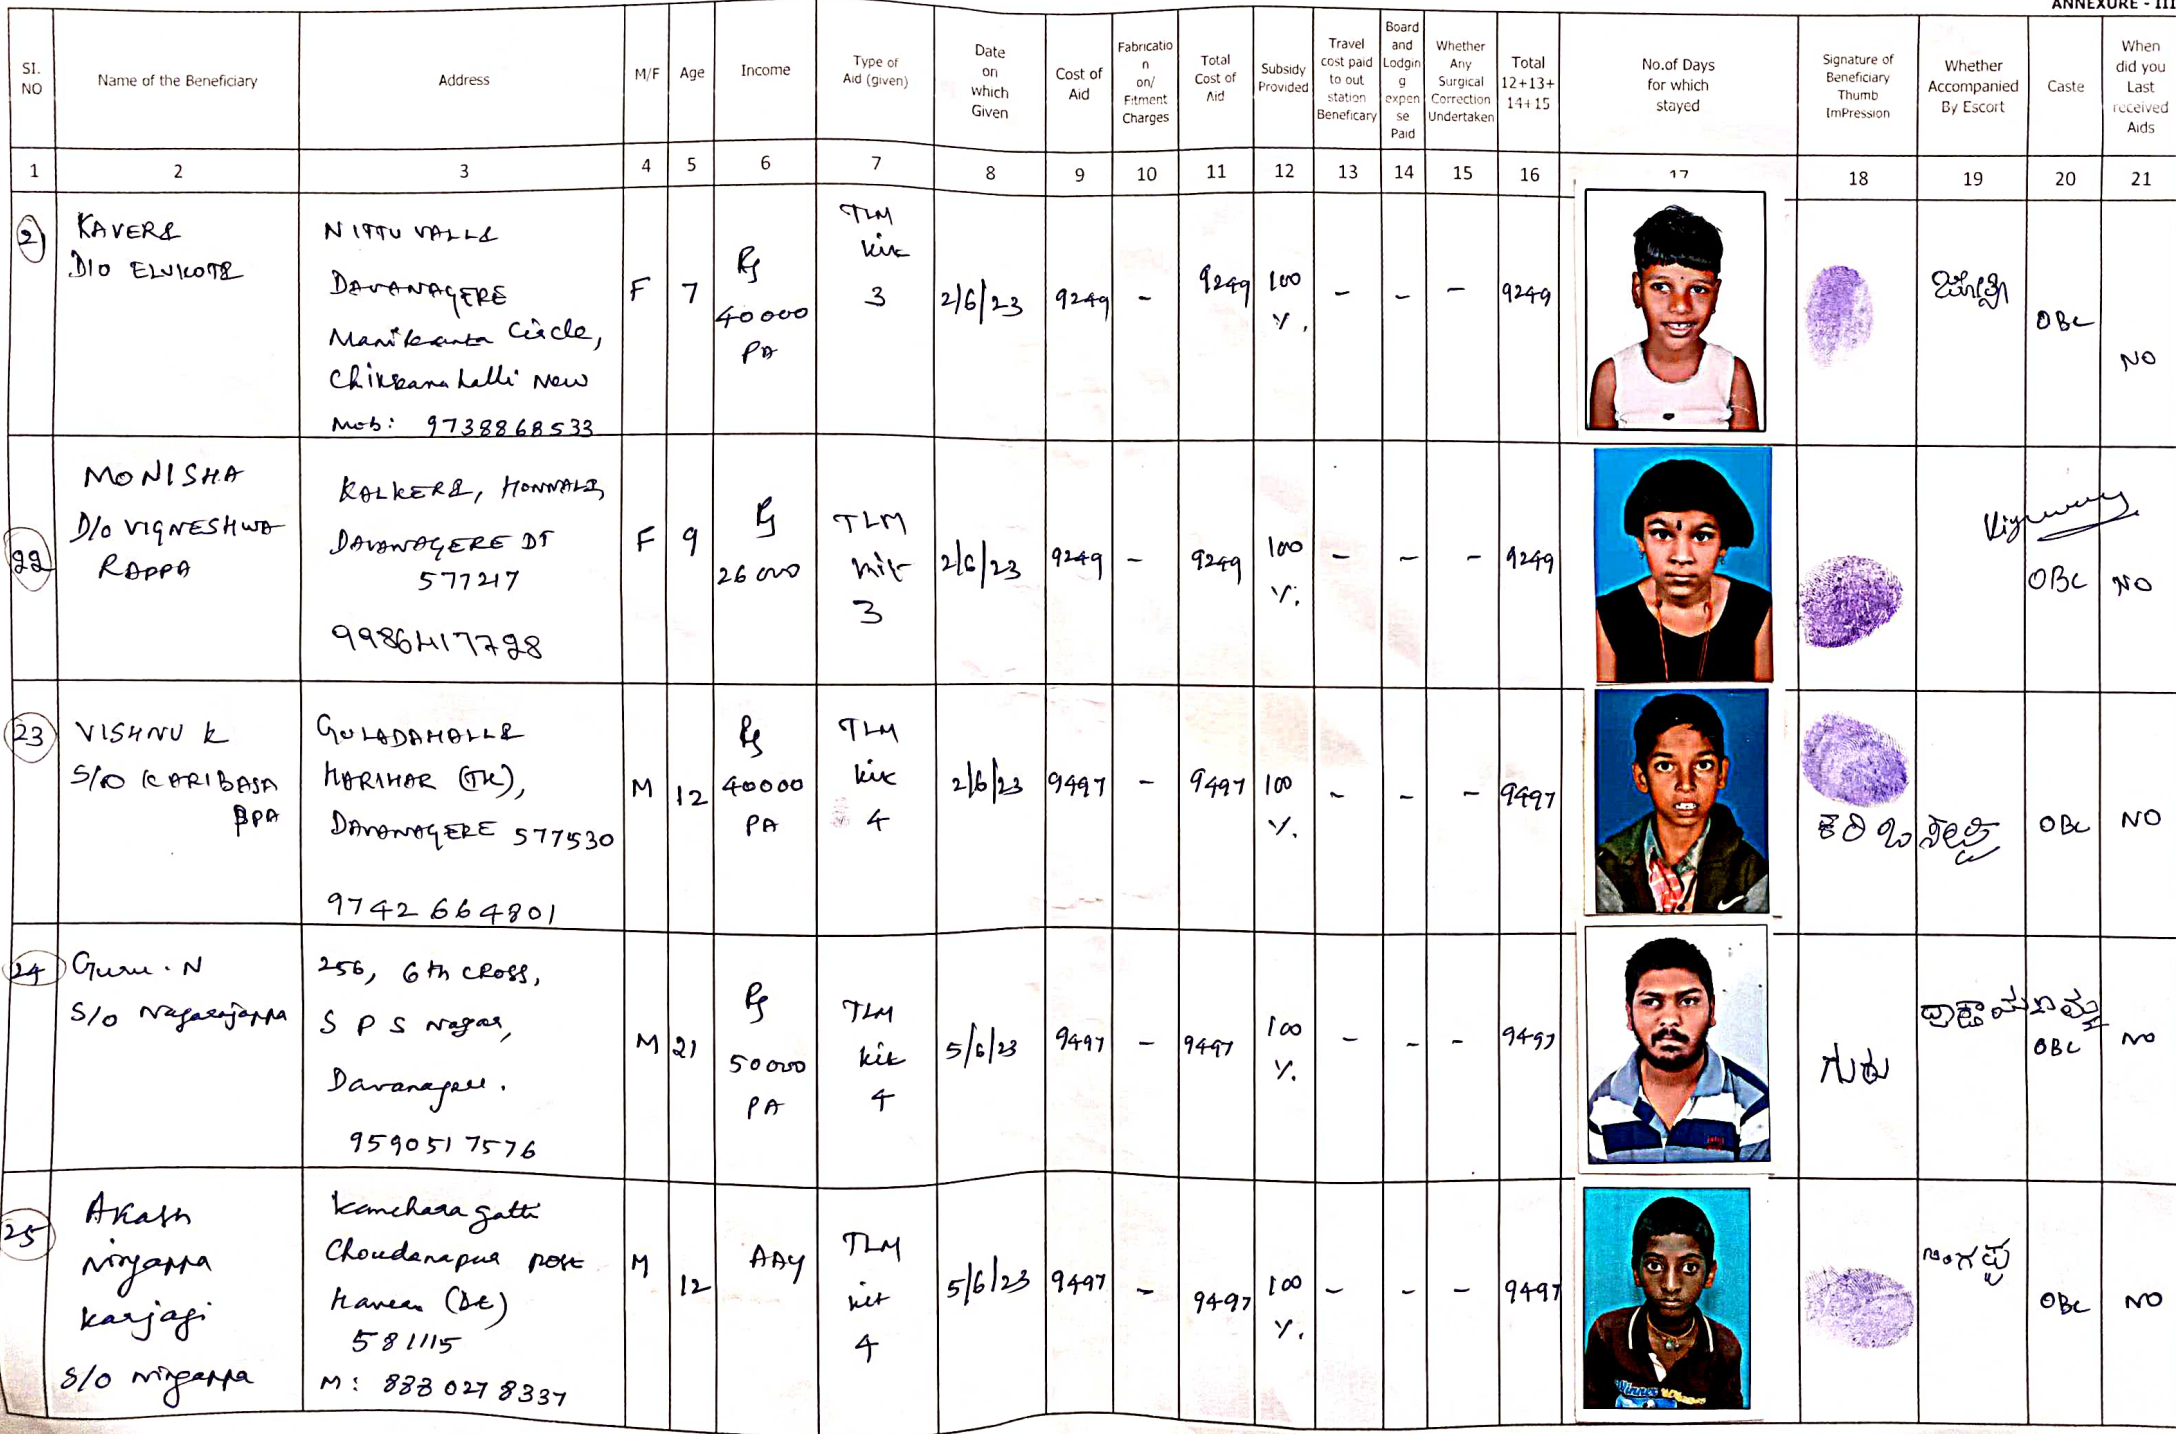 ANNEXURE - III
SI. NO
Name of the Beneficiary
Address
M/F
Age
Income
Type of
Aid (given)
Date
on
which
Given
Cost of
Aid
Fabricatio
n
on/
Fitment
Charges
Total
Cost of
Aid
Subsidy
Provided
Travel
cost paid
to out
station
Beneficary
Board
and
Lodgin
g
expen
se
Paid
Whether
Any
Surgical
Correction
Undertaken
Total
12+13+
14+15
No.of Days
for which
stayed
Signature of
Beneficiary
Thumb
ImPression
Whether
Accompanied
By Escort
Caste
When
did you
Last
received
Aids
1 2 3 4 5 6 7 8 9 10 11 12 13 14 15 16 17 18 19 20 21
KAVERI
D/O ELUKOTI
NITTUVALLI
DAVANAGERE
Manikanta Circle,
Chikkanahalli New
Mob: 9738868533
F
7
Rs
40000
PA
TLM
kit
3
2/6/23
9249
-
9249
100
%.
-
-
-
9249
OBC
NO
22
MONISHA
D/O VIGNESHWA
RAPPA
KALKERI, HONNALI,
DAVANAGERE DT
577217
9986417728
F
9
Rs
26000
TLM
kit
3
2/6/23
9249
-
9249
100
%.
-
-
-
9249
OBC
NO
23
VISHNU K
S/O KARIBASA
PPA
GULADAHALLI
HARIHAR (TK),
DAVANAGERE 577530
9742664801
M
12
Rs
40000
PA
TLM
kit
4
2/6/23
9497
-
9497
100
%.
-
-
-
9497
ಕರಿಬಸಪ್ಪ
OBC
NO
24
Guru. N
S/o Nagarajappa
256, 6th CROSS,
S P S Nagar,
Davanagere.
9590517576
M
21
Rs
50000
PA
TLM
kit
4
5/6/23
9497
-
9497
100
%.
-
-
-
9497
ಗುರು
ದ್ರಾಕ್ಷಾಯಣಮ್ಮ
OBC
NO
25
Akash
Ningappa
Karjagi
S/o Ningappa
Kancharagatti
Choudanapur post
Haveri (Dt)
581115
M: 8830278337
M
12
AAY
TLM
kit
4
5/6/23
9497
-
9497
100
%.
-
-
-
9497
ನಿಂಗಪ್ಪ
OBC
NO